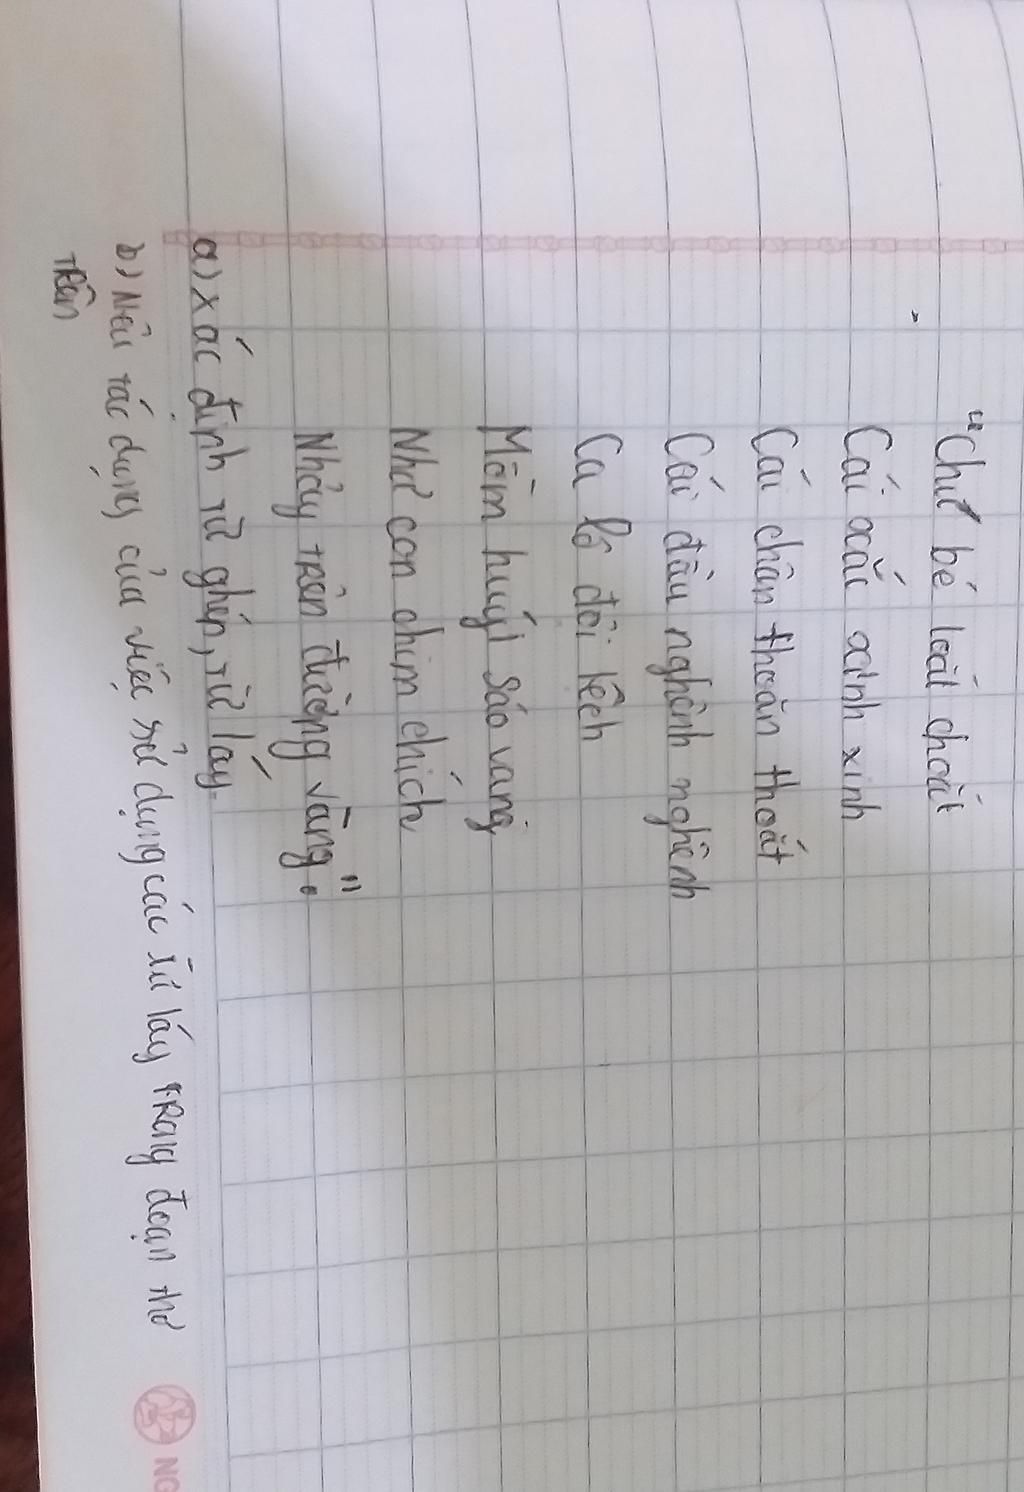 "Chú bé loắt choắt
Cái xắc xinh xinh
Cái chân thoăn thoắt
Cái đầu nghênh nghênh
Ca lô đội lệch
Mồm huýt sáo vang
Như con chim chích
Nhảy trên đường vàng."
a) xác định từ ghép, từ láy.
b) Nêu tác dụng của việc sử dụng các từ láy trong đoạn thơ
trên
NG